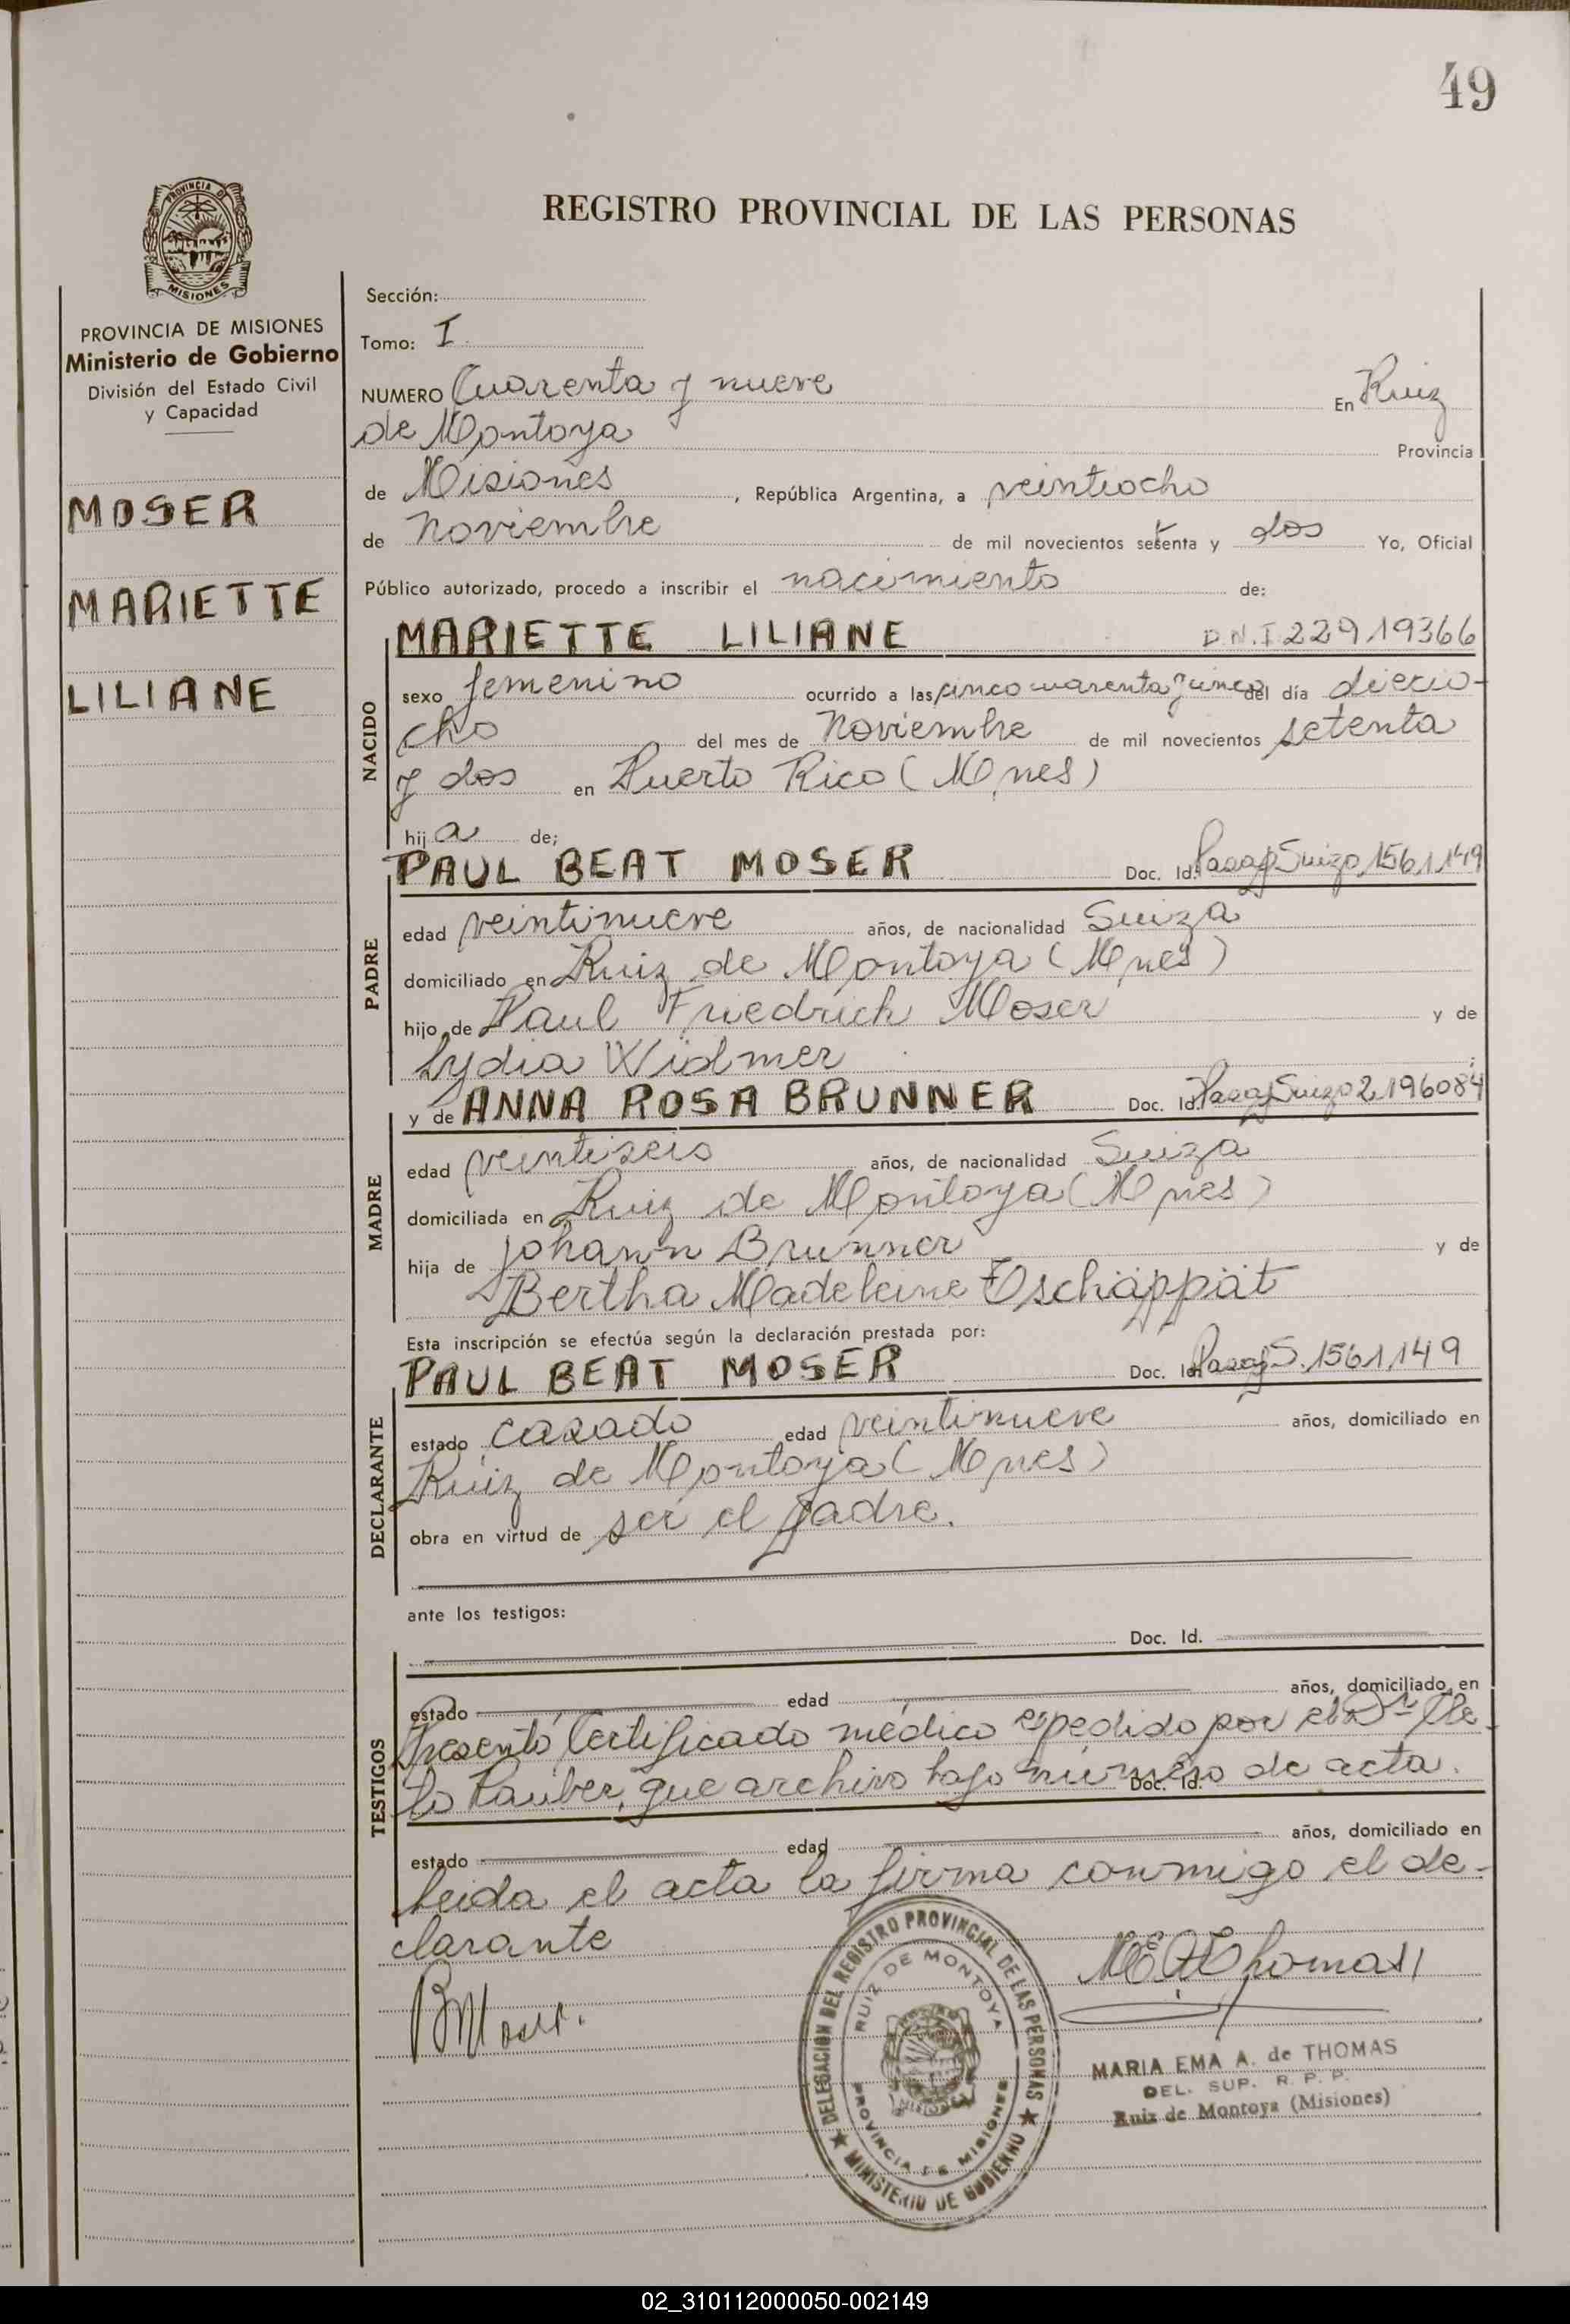 49
REGISTRO PROVINCIAL DE LAS PERSONAS
PROVINCIA DE MISIONES
PROVINCIA DE MISIONES
Ministerio de Gobierno
División del Estado Civil
y Capacidad
MOSER
MARIETTE
LILIANE
Sección:
Tomo: I
NUMERO Cuarenta y nueve En Ruiz
de Montoya Provincia
de Misiones, República Argentina, a veintiocho
de noviembre de mil novecientos setenta y dos Yo, Oficial
Público autorizado, procedo a inscribir el nacimiento de:
NACIDO
MARIETTE LILIANE D.N.I. 22919366
sexo femenino ocurrido a las cinco cuarenta y cinco del día diecio-
cho del mes de Noviembre de mil novecientos setenta
y dos en Puerto Rico (Mnes)
hija de;
PADRE
PAUL BEAT MOSER Doc. Id. Pasap Suizo 1561149
edad veintinueve años, de nacionalidad Suiza
domiciliado en Ruiz de Montoya (Mnes)
hijo de Paul Friedrich Moser y de
Lydia Widmer ;
MADRE
y de ANNA ROSA BRUNNER Doc. Id. Pasap Suizo 2196084
edad veintiseis años, de nacionalidad Suiza
domiciliada en Ruiz de Montoya (Mnes)
hija de Johann Brunner y de
Bertha Madeleine Tschäppät
Esta inscripción se efectúa según la declaración prestada por:
DECLARANTE
PAUL BEAT MOSER Doc. Id. Pasap S. 1561149
estado casado edad veintinueve años, domiciliado en
Ruiz de Montoya (Mnes)
obra en virtud de ser el padre.
ante los testigos:
Doc. Id.
TESTIGOS
estado edad años, domiciliado en
Presentó Certificado médico espedido por el Dr
Rauber, que archivo bajo número de acta.
Doc. Id.
estado edad años, domiciliado en
leida el acta la firma conmigo el de-
clarante
BMoser.
M E A Thomas
DELEGACION DEL REGISTRO PROVINCIAL DE LAS PERSONAS
RUIZ DE MONTOYA
PROVINCIA DE MISIONES
MINISTERIO DE GOBIERNO
MARIA EMA A. de THOMAS
DEL. SUP. R. P. P.
Ruiz de Montoya (Misiones)
02_310112000050-002149